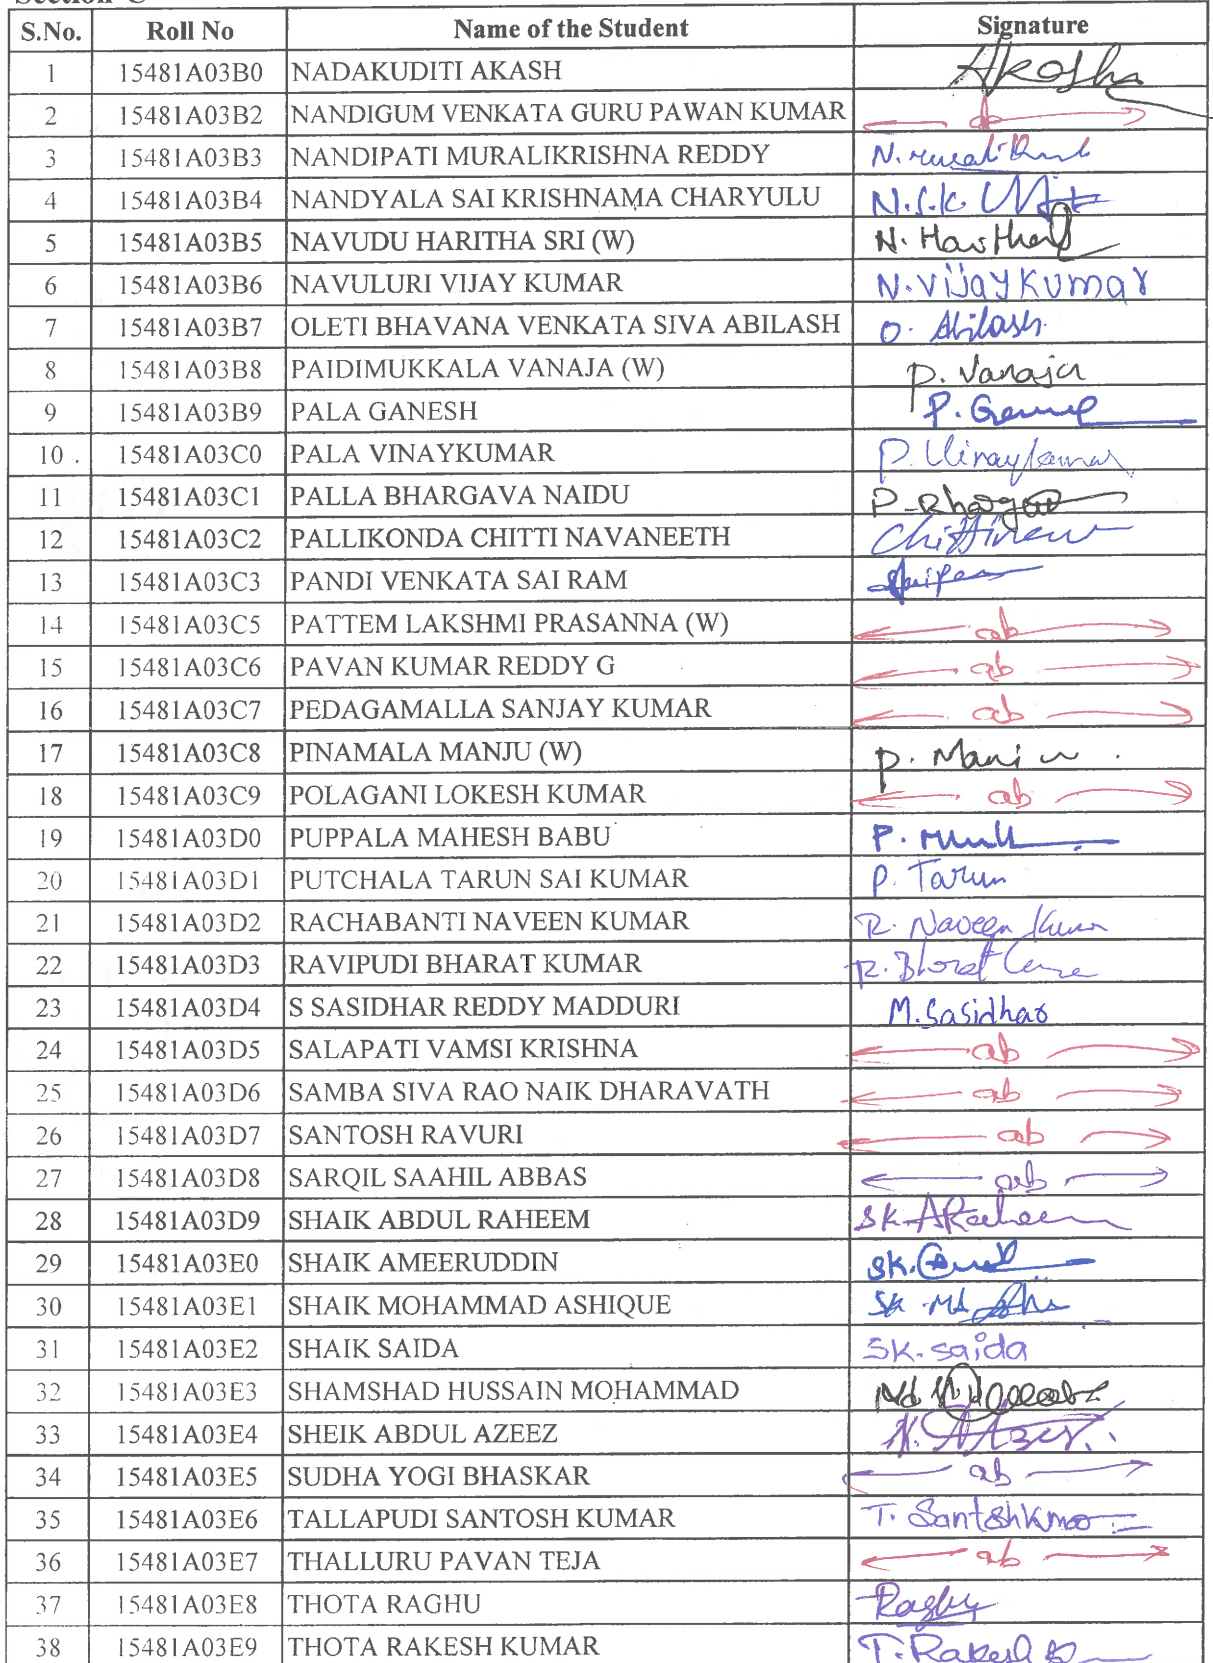 Section-C
S.No. Roll No Name of the Student Signature
1 15481A03B0 NADAKUDITI AKASH Akosha
2 15481A03B2 NANDIGUM VENKATA GURU PAWAN KUMAR ab
3 15481A03B3 NANDIPATI MURALIKRISHNA REDDY
4 15481A03B4 NANDYALA SAI KRISHNAMA CHARYULU N.S.K.
5 15481A03B5 NAVUDU HARITHA SRI (W) N.
6 15481A03B6 NAVULURI VIJAY KUMAR N.VijayKumar
7 15481A03B7 OLETI BHAVANA VENKATA SIVA ABILASH O. Abilash
8 15481A03B8 PAIDIMUKKALA VANAJA (W) P. Vanaja
9 15481A03B9 PALA GANESH P.
10 15481A03C0 PALA VINAYKUMAR P. Vinaykumar
11 15481A03C1 PALLA BHARGAVA NAIDU
12 15481A03C2 PALLIKONDA CHITTI NAVANEETH
13 15481A03C3 PANDI VENKATA SAI RAM
14 15481A03C5 PATTEM LAKSHMI PRASANNA (W) ab
15 15481A03C6 PAVAN KUMAR REDDY G ab
16 15481A03C7 PEDAGAMALLA SANJAY KUMAR ab
17 15481A03C8 PINAMALA MANJU (W) P.
18 15481A03C9 POLAGANI LOKESH KUMAR ab
19 15481A03D0 PUPPALA MAHESH BABU P.
20 15481A03D1 PUTCHALA TARUN SAI KUMAR P. Tarun
21 15481A03D2 RACHABANTI NAVEEN KUMAR R. Naveen Kumar
22 15481A03D3 RAVIPUDI BHARAT KUMAR R.
23 15481A03D4 S SASIDHAR REDDY MADDURI M.Sasidhar
24 15481A03D5 SALAPATI VAMSI KRISHNA ab
25 15481A03D6 SAMBA SIVA RAO NAIK DHARAVATH ab
26 15481A03D7 SANTOSH RAVURI ab
27 15481A03D8 SARQIL SAAHIL ABBAS ab
28 15481A03D9 SHAIK ABDUL RAHEEM SK.ARaheem
29 15481A03E0 SHAIK AMEERUDDIN SK.
30 15481A03E1 SHAIK MOHAMMAD ASHIQUE SK Md
31 15481A03E2 SHAIK SAIDA SK.saida
32 15481A03E3 SHAMSHAD HUSSAIN MOHAMMAD Md
33 15481A03E4 SHEIK ABDUL AZEEZ
34 15481A03E5 SUDHA YOGI BHASKAR ab
35 15481A03E6 TALLAPUDI SANTOSH KUMAR T. Santoshkmar
36 15481A03E7 THALLURU PAVAN TEJA ab
37 15481A03E8 THOTA RAGHU Raghu
38 15481A03E9 THOTA RAKESH KUMAR T.Rakesh